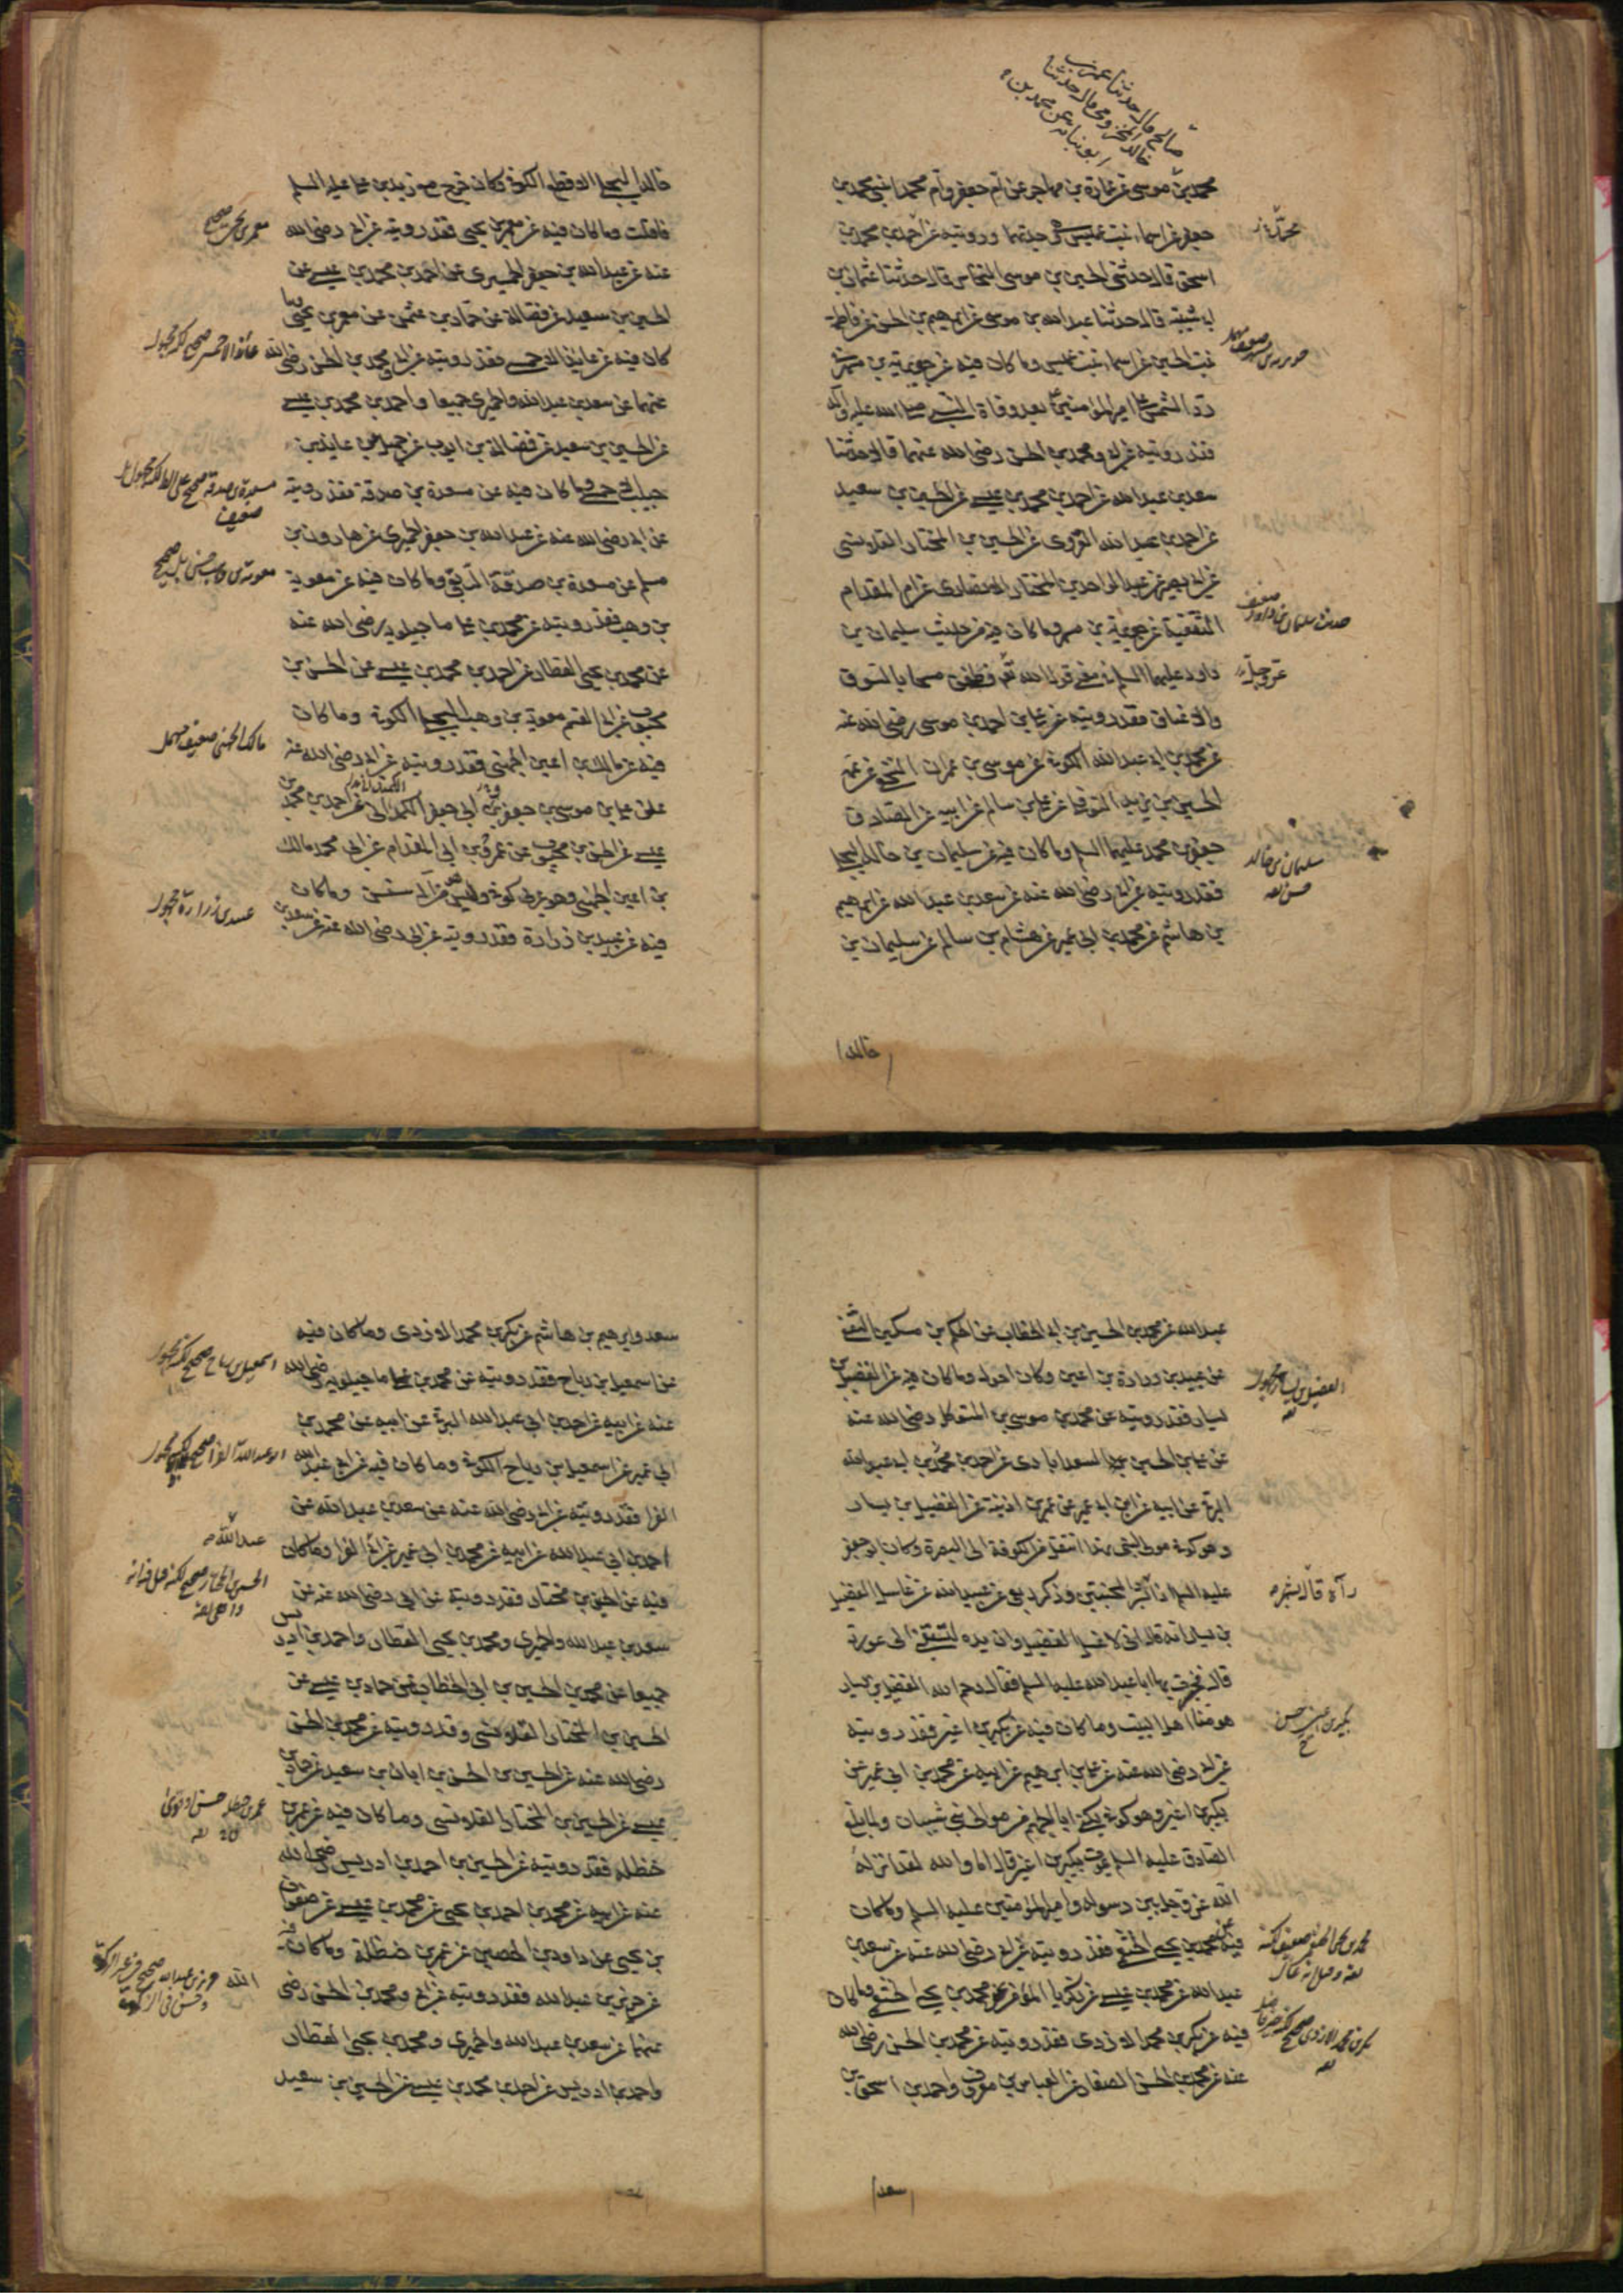 محمد بن موسى عن عمارة بن مهاجر عن ام جعفر وام محمد ابنتي محمد بن
جعفر عن اسماء بنت عميس هي جدتهما ورويته عن احمد بن محمد بن
اسحق قال حدثني الحسين بن موسى النخاس قال حدثنا عثمان بن
ابي شيبة قال حدثنا عبد الله بن موسى عن ابرهيم بن الحسن عن فاطمة
بنت الحسين عن اسماء بنت عميس وما كان فيه عن جويرية بن مسهر
رد الشمس على امير المؤمنين بعد وفاة النبي صلى الله عليه وآله
فقد رويته عن ابي ومحمد بن الحسن رضي الله عنهما قالا حدثنا
سعد بن عبد الله عن احمد بن محمد بن عيسى عن الحسين بن سعيد
عن احمد بن عبد الله القروي عن الحسين بن المختار القلانسي
عن ابي بصير عن عبد الواحد بن المختار الانصاري عن ام المقدام
الثقفية عن جويرية بن مسهر وما كان فيه من حديث سليمان بن
داود عليهما السلم في معنى قول الله تعالى فطفق مسحا بالسوق
والاعناق فقد رويته عن علي بن احمد بن موسى رضي الله عنه
عن محمد بن ابي عبد الله الكوفي عن موسى بن عمران النخعي عن عمه
الحسين بن يزيد النوفلي عن علي بن سالم عن ابيه عن الصادق
جعفر بن محمد عليهما السلم وما كان فيه عن سليمان بن خالد البجلي
فقد رويته عن ابي رضي الله عنه عن سعد بن عبد الله عن ابرهيم
بن هاشم عن محمد بن ابي عمير عن هشام بن سالم عن سليمان بن
حديث سليمان بن داود ضعيف
عز وجل
سليمان بن خالد
خالد
خالد البجلي الاقطع الكوفي وكان خرج مع زيد بن علي عليه السلم
فافلت وما كان فيه عن معمر بن يحيى فقد رويته عن ابي رضي الله
عنه عن عبد الله بن جعفر الحميري عن احمد بن محمد بن عيسى عن
الحسين بن سعيد عن فضالة عن حماد بن عثمن عن معمر بن يحيى وما
كان فيه عن عائذ الاحمسي فقد رويته عن ابي ومحمد بن الحسن رضي الله
عنهما عن سعد بن عبد الله والحميري جميعا واحمد بن محمد بن عيسى
عن الحسين بن سعيد عن فضالة بن ايوب عن جميل عن عايذ بن
حبيب الاحمسي وما كان فيه عن مسعدة بن صدقة فقد رويته
عن ابي رضي الله عنه عن عبد الله بن جعفر الحميري عن هارون بن
مسلم عن مسعدة بن صدقة الربعي وما كان فيه عن معوية
بن وهب فقد رويته عن محمد بن علي ماجيلويه رضي الله عنه
عن محمد بن يحيى العطار عن احمد بن محمد بن عيسى عن الحسن بن
محبوب عن ابي القسم معوية بن وهب البجلي الكوفي وما كان
فيه عن مالك بن اعين الجهني فقد رويته عن ابي رضي الله عنه
عن علي بن موسى بن جعفر بن ابي جعفر الكمنداني عن احمد بن محمد بن
عيسى عن الحسن بن محبوب عن عمرو بن ابي المقدام عن ابي محمد مالك
بن اعين الجهني وهو عربي كوفي وليس هو من آل سنسن وما كان
فيه عن عبيد بن زرارة فقد رويته عن ابي رضي الله عنه عن سعد بن
معمر بن يحيى صحيح
عائذ الاحمسي صحيح لكنه مجهول
معوية بن وهب حسن بل صحيح
مالك الجهني ضعيف مهمل
عبيد بن زرارة مجهول
عبد الله عن محمد بن الحسين بن ابي الخطاب عن الحكم بن مسكين الثقفي
عن عبيد بن زرارة بن اعين وكان احول وما كان فيه عن الفضيل بن
يسار فقد رويته عن محمد بن موسى بن المتوكل رضي الله عنه
عن علي بن الحسين السعدابادي عن احمد بن محمد بن ابي عبد الله
البرقي عن ابيه عن ابن ابي عمير عن عمر بن اذينة عن الفضيل بن يسار
وهو كوفي مولى لبني نهد انتقل من الكوفة الى البصرة وكان ابو جعفر
عليه السلم اذا رآه قال بشر المخبتين وذكر ربعي عن عبد الله عن غاسل الفضيل
بن يسار انه قال اني لاغسل الفضيل وان يده لتسبقني الى عورته
قال فخبرت بهذا ابا عبد الله عليه السلم فقال رحم الله الفضيل بن يسار
هو منا اهل البيت وما كان فيه عن بكير بن اعين فقد رويته
عن ابي رضي الله عنه عن علي بن ابرهيم عن ابيه عن محمد بن ابي عمير عن
بكير بن اعين وهو كوفي يكنى ابا الجهم من موالي بني شيبان ولما بلغ
الصادق عليه السلم موت بكير بن اعين قال اما والله لقد انزله
الله عز وجل بين رسوله وامير المؤمنين عليه السلم وما كان
فيه عن محمد بن يحيى الخثعمي فقد رويته عن ابي رضي الله عنه عن سعد بن
عبد الله عن محمد بن عيسى عن زكريا المؤمن عن محمد بن يحيى الخثعمي وما كان
فيه عن بكر بن محمد الازدي فقد رويته عن محمد بن الحسن رضي الله
عنه عن محمد بن الحسن الصفار عن العباس بن معروف واحمد بن اسحق بن
الفضيل بن يسار مجهول
رآه قال بشر
بكير بن اعين حسن
سعد
سعد وابرهيم بن هاشم عن بكر بن محمد الازدي وما كان فيه
عن اسمعيل بن رباح فقد رويته عن محمد بن علي ماجيلويه رضي الله
عنه عن ابيه عن احمد بن ابي عبد الله البرقي عن ابيه عن محمد بن
ابي عمير عن اسمعيل بن رباح الكوفي وما كان فيه عن ابي عبد الله
الفرا فقد رويته عن ابي رضي الله عنه عن سعد بن عبد الله عن
احمد بن ابي عبد الله عن ابيه عن محمد بن ابي عمير عن ابي الفرا وما كان
فيه عن الحسين بن مختار فقد رويته عن ابي رضي الله عنه عن
سعد بن عبد الله والحميري ومحمد بن يحيى العطار واحمد بن ادريس
جميعا عن محمد بن الحسين بن ابي الخطاب عن حماد بن عيسى عن
الحسين بن المختار القلانسي وقد رويته عن محمد بن الحسن
رضي الله عنه عن الحسين بن الحسن بن ابان بن سعيد عن حماد بن
عيسى عن الحسين بن المختار القلانسي وما كان فيه عن عمر بن
حنظلة فقد رويته عن الحسين بن احمد بن ادريس رضي الله
عنه عن ابيه عن محمد بن احمد بن يحيى عن محمد بن عيسى عن صفوان
بن يحيى عن داود بن الحصين عن عمر بن حنظلة وما كان فيه
عن حريز بن عبد الله فقد رويته عن ابي ومحمد بن الحسن رضي الله
عنهما عن سعد بن عبد الله والحميري ومحمد بن يحيى العطار
واحمد بن ادريس عن احمد بن محمد بن عيسى عن الحسين بن سعيد
اسمعيل بن رباح صحيح لكنه مجهول
ابو عبد الله الفرا صحيح لكنه مجهول
عبد الله